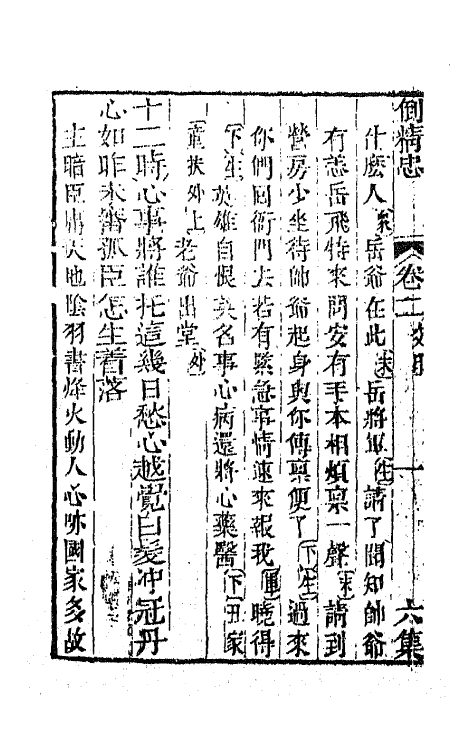 倒精忠 卷二 六集
什麽人（衆）岳爺在此（末）岳將軍（生）請了聞知帥爺
有恙岳飛特來問安有手本相煩稟一聲（末）請到
營房少坐待帥爺起身與你傳稟便了（下）（生）過來
你們回衙門去若有緊急事情速來報我（軍）曉得
（下）（生）英雄自恨美名事心病還將心藥醫（下）丑家
童扶外上 老爺出堂（外）
十二時心事將誰托這幾日愁心越覺白髮冲冠丹
心如昨未審孤臣怎生着落
主暗臣庸天地陰羽書烽火動人心吥國家多故